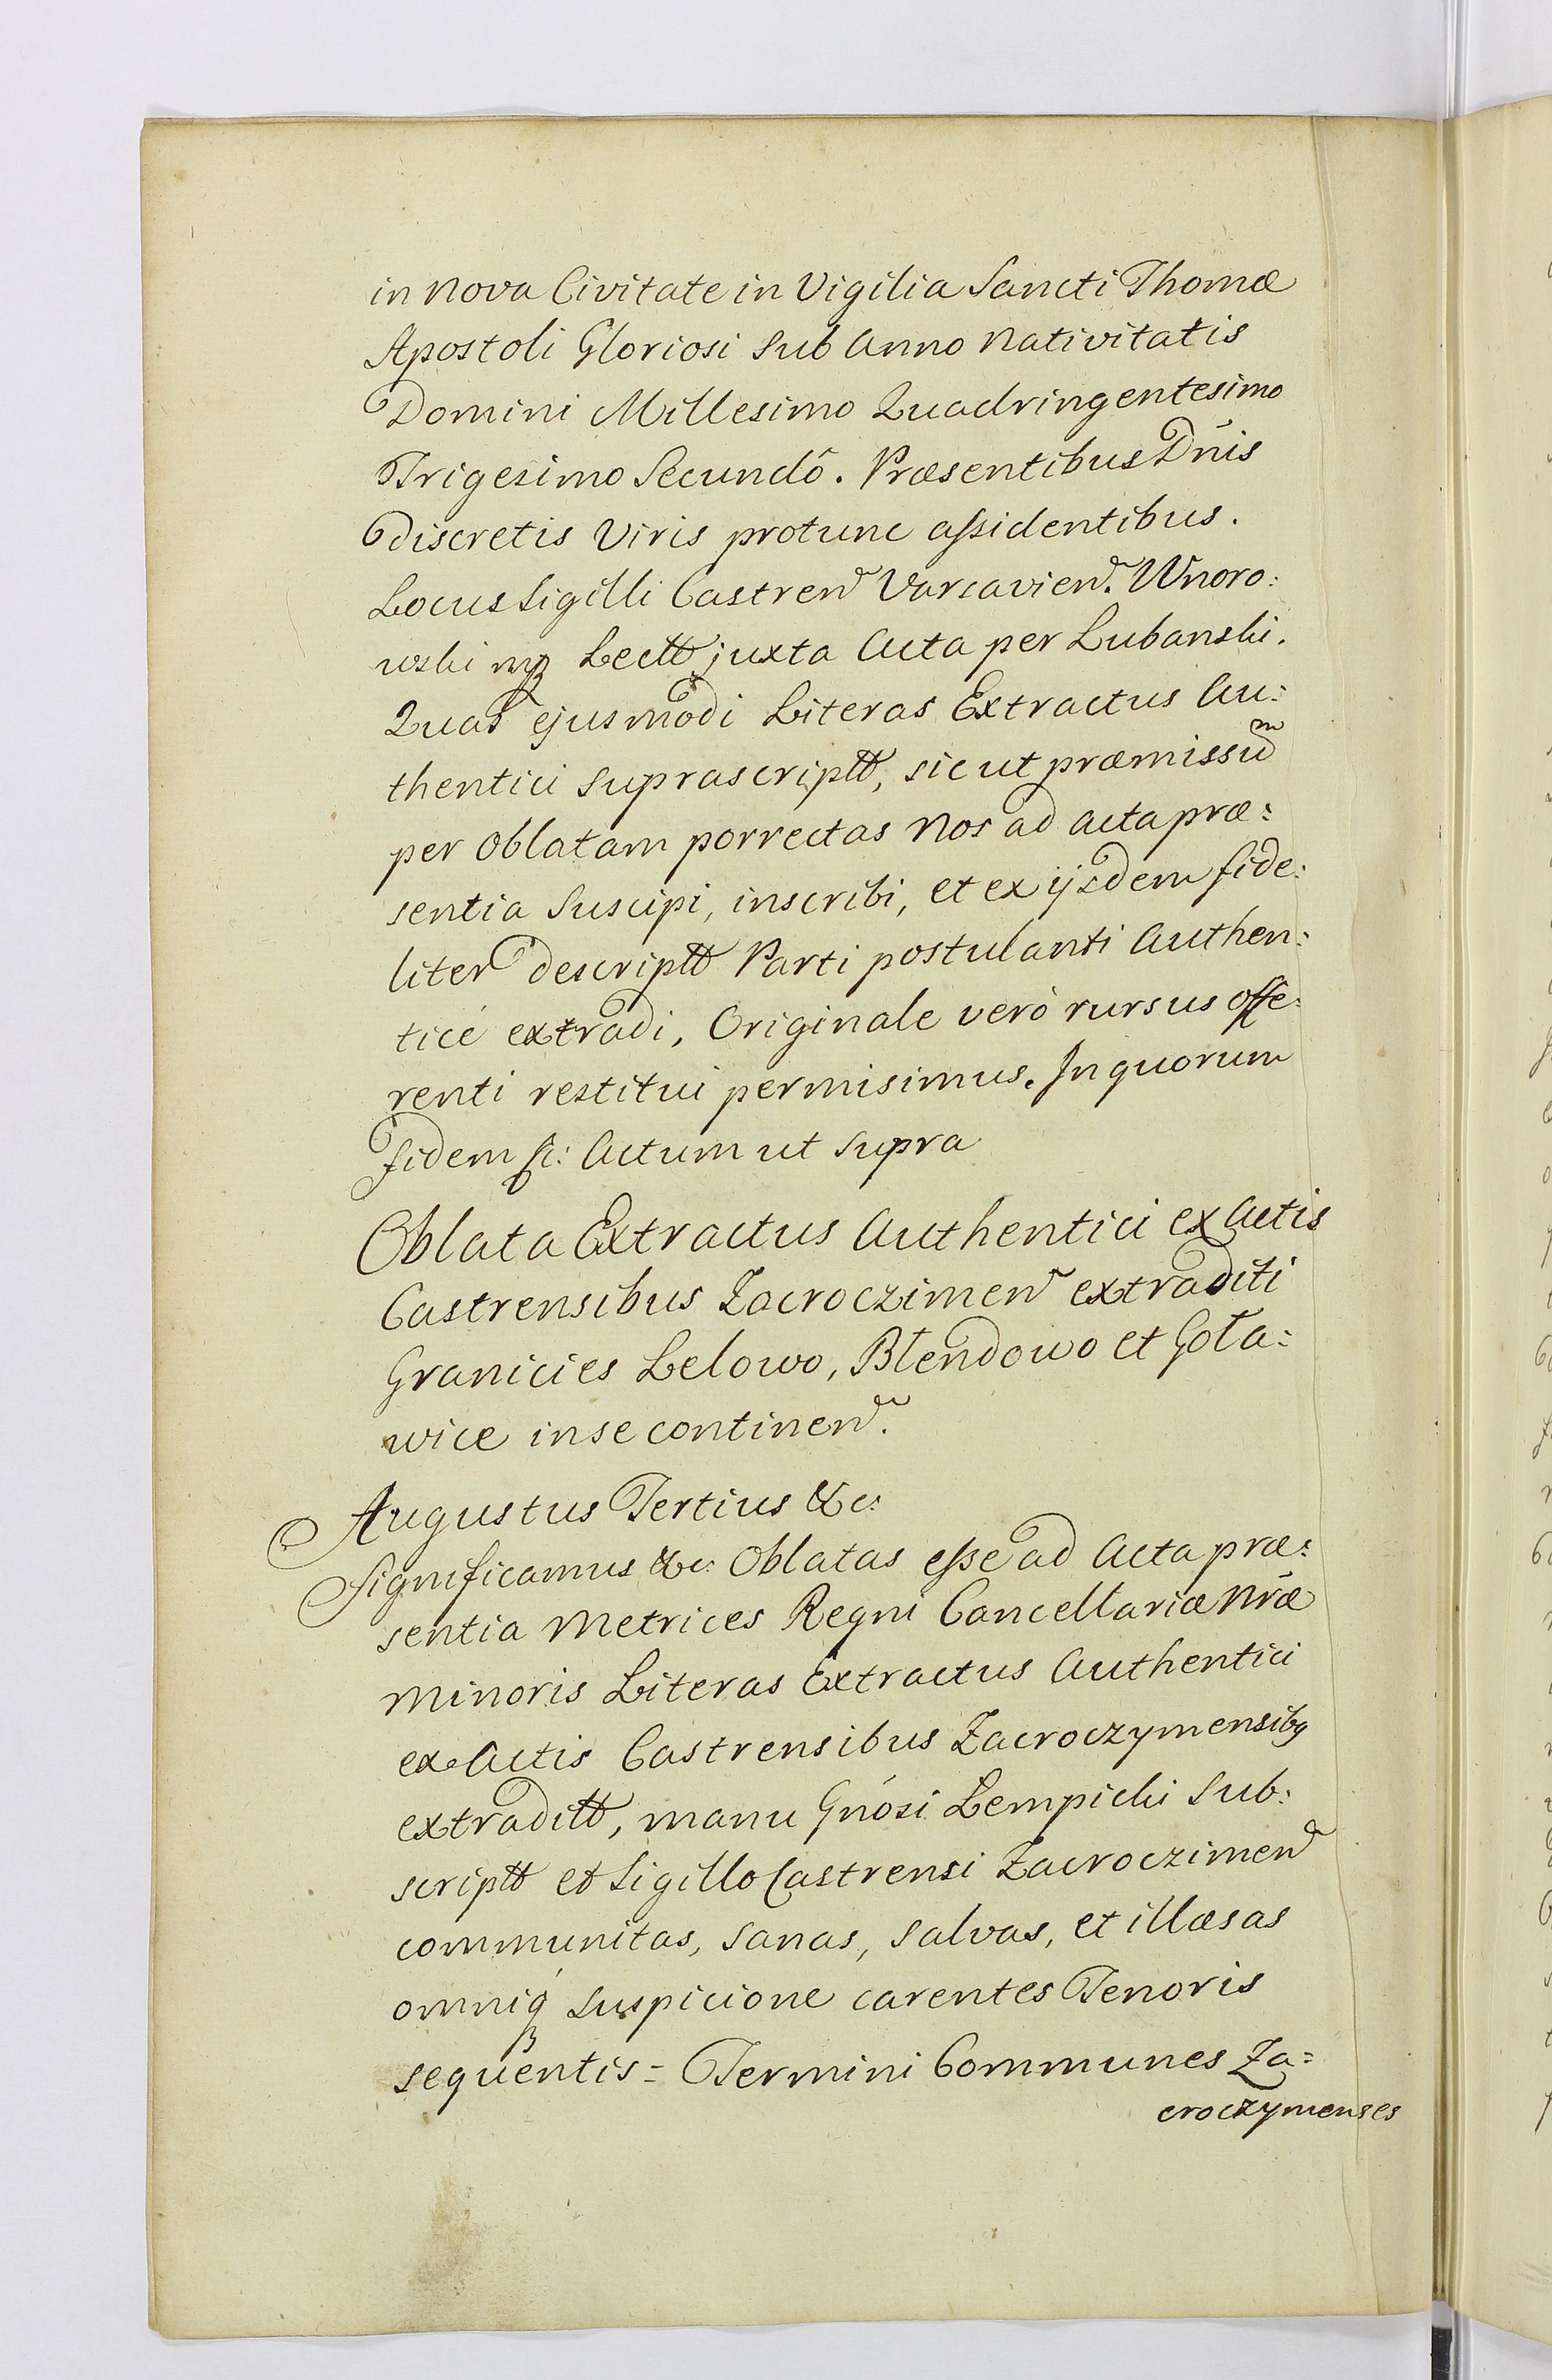 in Nova Civitate in Vigilia Sancti Thomæ
Apostoli Gloriosi Sub Anno Nativitatis
Domini Millesimo Quadringentesimo
Trigesimo Secundô. Præsentibus Dn̄is
Discretis Viris protunc aſsidentibus.
Locus Sigilli Castren̄ Varsavien̄. Wnoro:
wski mp Lectt juxta Acta per Lubanski.
Quas ejusmodi Literas Extractus Au:
thentici suprascriptt, sicut præmissū
per Oblatam porrectas Nos ad Acta præ:
sentia Suscipi, inscribi, et ex ijsdem fide:
liter descriptt Parti postulanti Authen:
ticé extradi, Originale verò rursus offe:
renti restitui permisimus. In quorum
fidem &c: Actum ut supra
Oblata Extractus Authentici ex Actis
Castrensibus Zacroczimen̄ extraditi
Granicies Lelowo, Błendowo et Goła:
wice in se continen̄.
Augustus Tertius &c:
Significamus &c: Oblatas eſse ad Acta præ:
sentia Metrices Regni Cancellariæ Nr̄æ
Minoris Literas Extractus Authentici
ex Actis Castrensibus Zacroczymensibꝫ
extraditt, manu Gn̄osi Lempicki Sub:
scriptt et Sigillo Castrensi Zacroczimen̄
communitas, Sanas, Salvas, et illæsas
omniqꝫ suspicione carentes Tenoris
sequentis = Termini Communes Za:
croczymenses